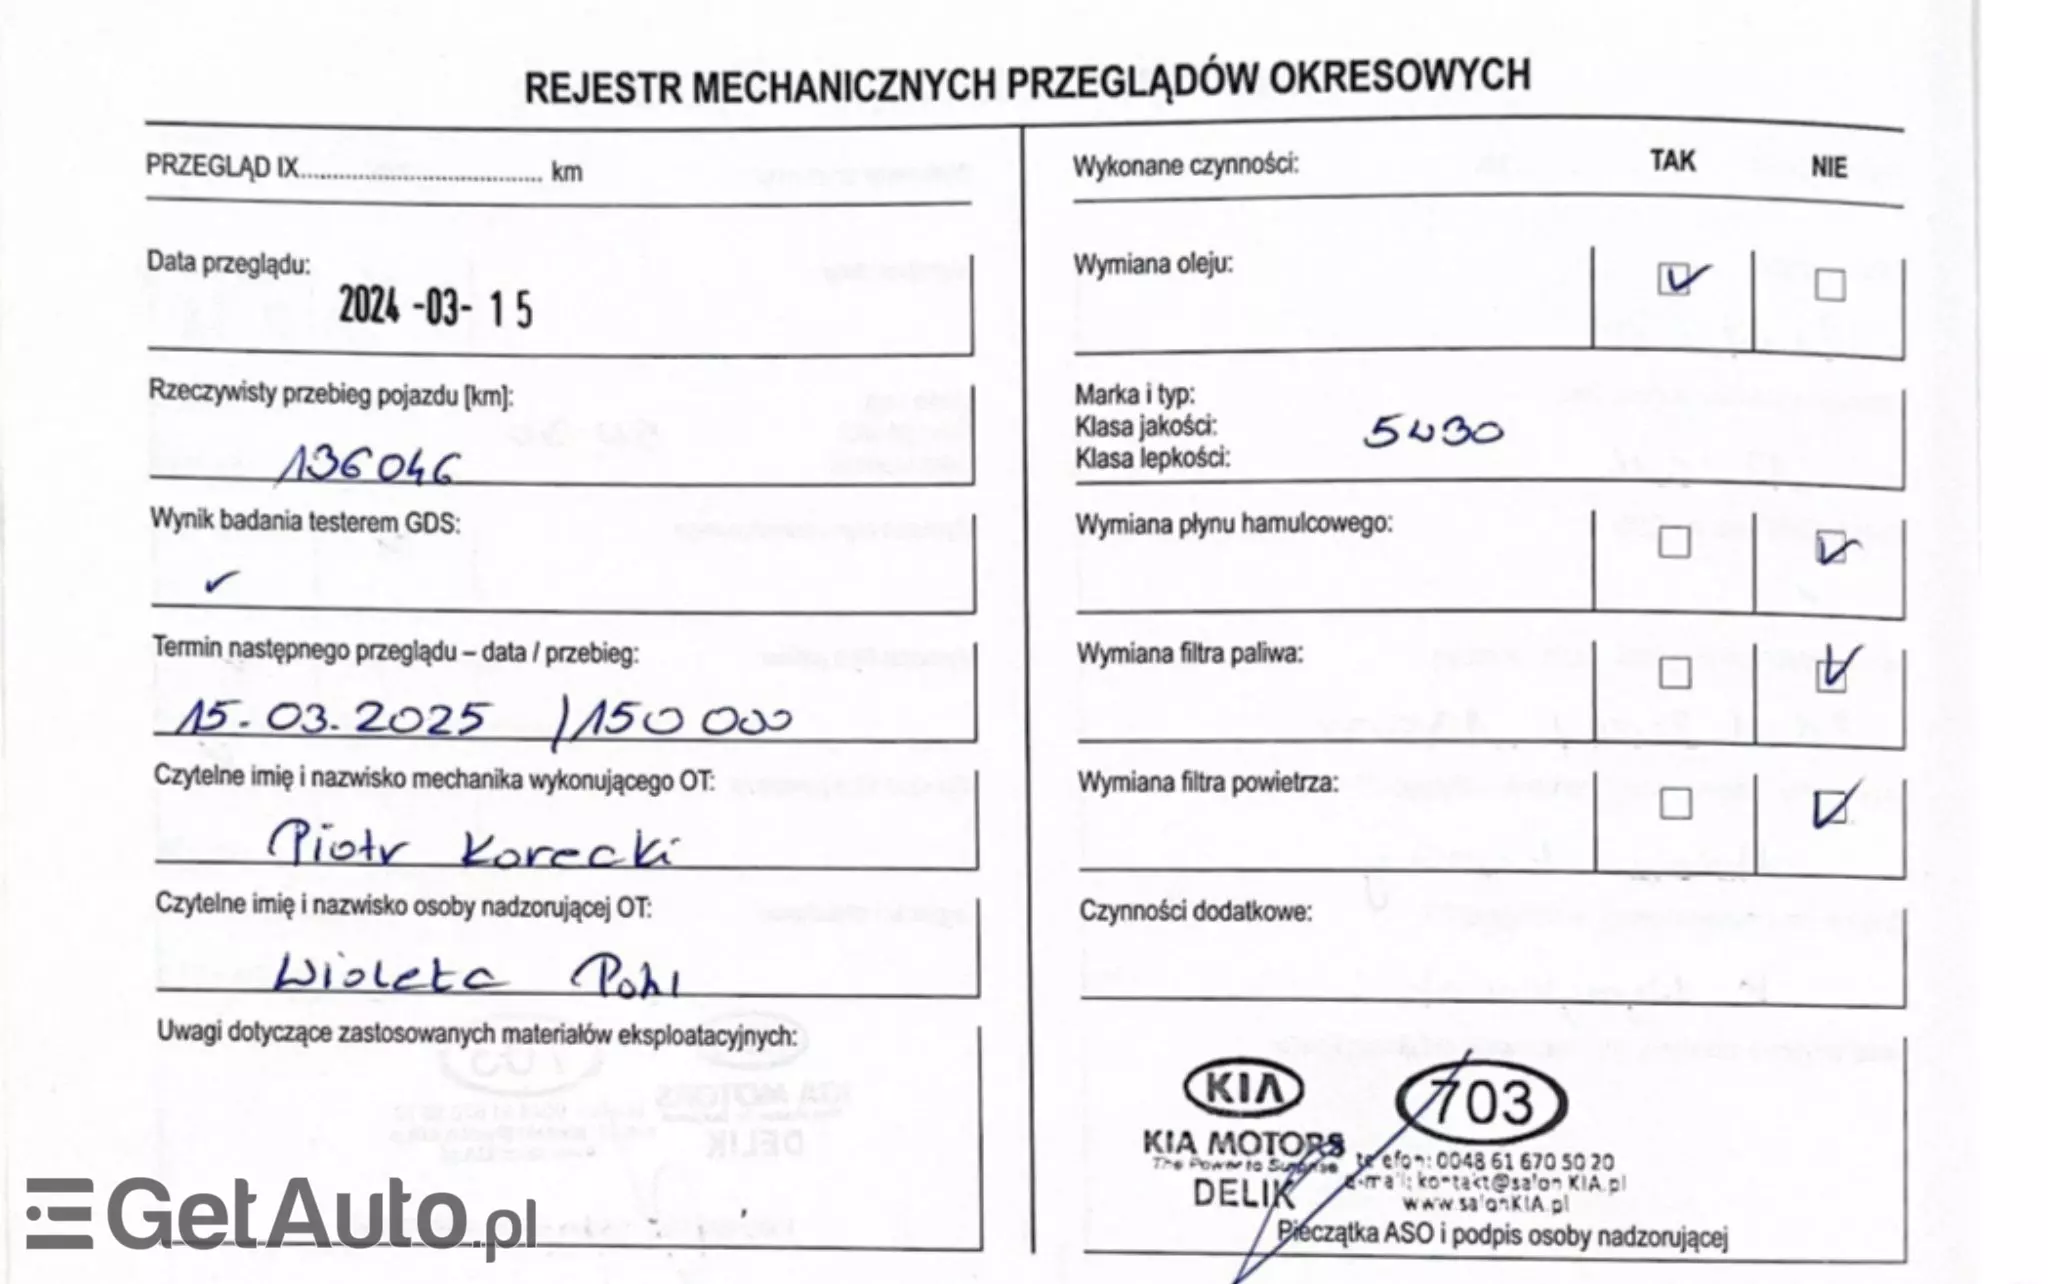 REJESTR MECHANICZNYCH PRZEGLĄDÓW OKRESOWYCH
PRZEGLĄD IX.......................................... km
Data przeglądu:
2024 -03- 15
Rzeczywisty przebieg pojazdu [km]:
136046
Wynik badania testerem GDS:
Termin następnego przeglądu – data / przebieg:
15.03.2025 / 150 000
Czytelne imię i nazwisko mechanika wykonującego OT:
Piotr Korecki
Czytelne imię i nazwisko osoby nadzorującej OT:
Wioleta Pohl
Uwagi dotyczące zastosowanych materiałów eksploatacyjnych:
Wykonane czynności: TAK NIE
Wymiana oleju:
Marka i typ:
Klasa jakości:
Klasa lepkości:
5W30
Wymiana płynu hamulcowego:
Wymiana filtra paliwa:
Wymiana filtra powietrza:
Czynności dodatkowe:
KIA
KIA MOTORS
The Power to Surprise
DELIK
703
telefon: 0048 61 670 50 20
e-mail: kontakt@salonKIA.pl
www.salonKIA.pl
Pieczątka ASO i podpis osoby nadzorującej
GetAuto.pl